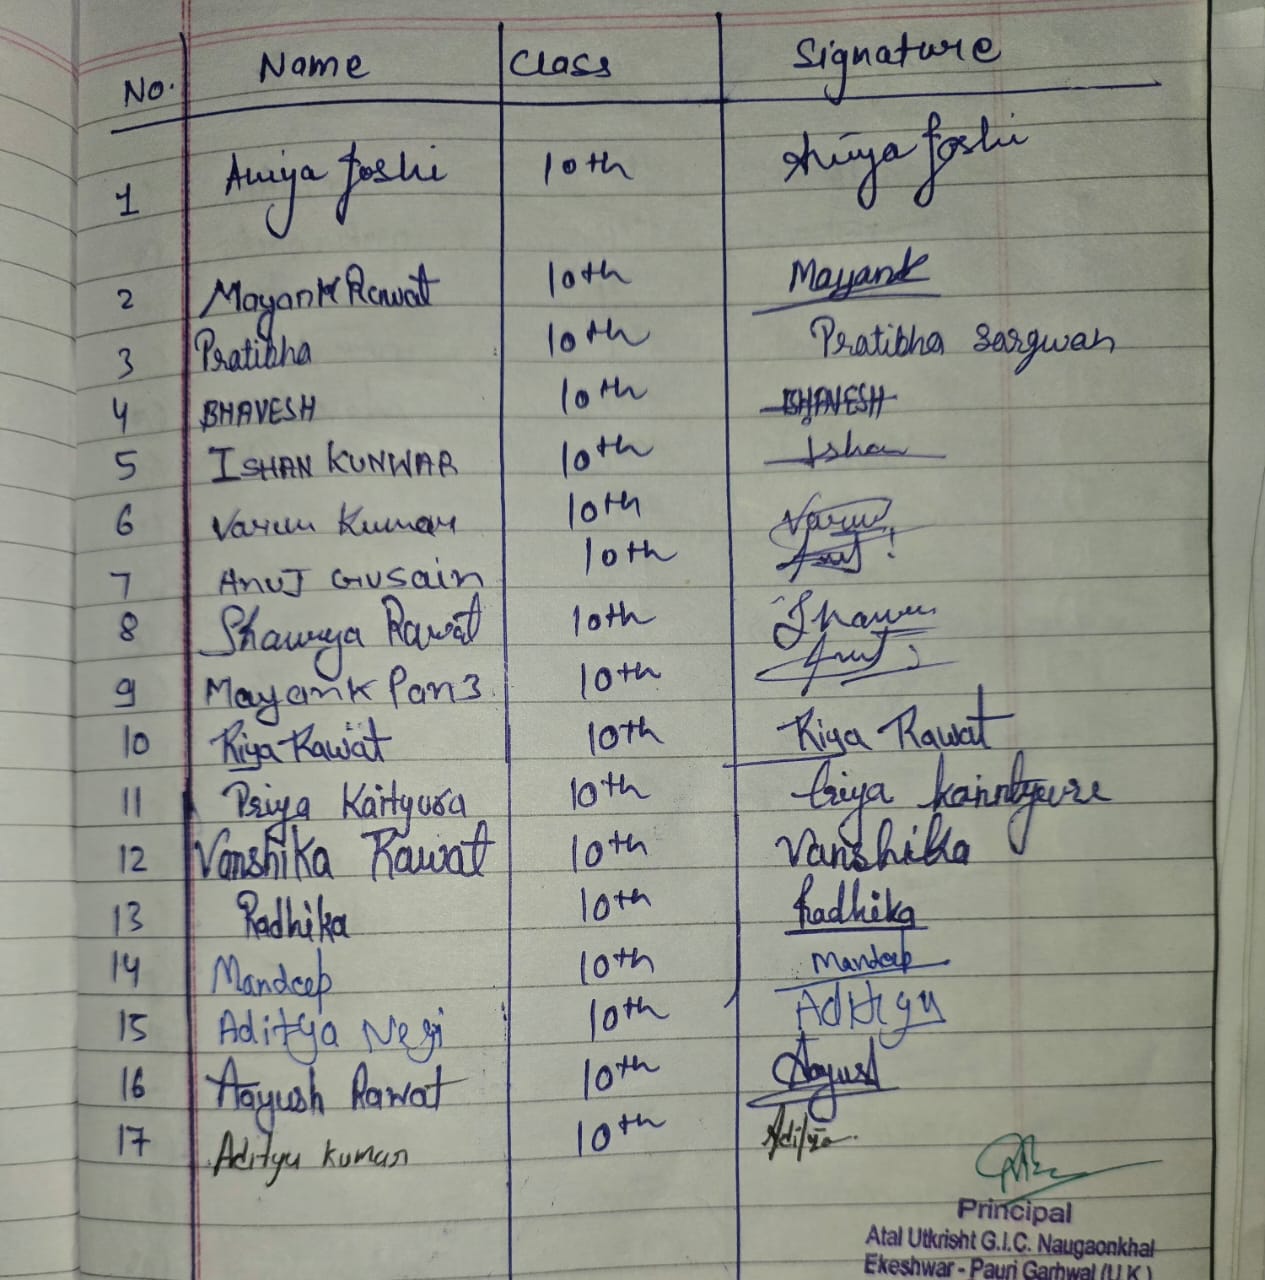 No. Name Class Signature
1 Aniya Joshi 10th Aniya Joshi
2 Mayank Rawat 10th Mayank
3 Pratibha 10th Pratibha Sargwan
4 BHAVESH 10th BHAVESH
5 ISHAN KUNWAR 10th Ishan
6 Varun Kumar 10th Varun
7 Anuj Gusain 10th
8 Shaurya Rawat 10th
9 Mayank Pan3 10th
10 Riya Rawat 10th Riya Rawat
11 Priya Kaityura 10th Priya
12 Vanshika Rawat 10th Vanshika
13 Radhika 10th Radhika
14 Mandeep 10th Mandeep
15 Aditya Negi 10th Aditya
16 Aayush Rawat 10th Aayush
17 Aditya Kumar 10th Aditya
Principal
Atal Utkrisht G.I.C. Naugaonkhal
Ekeshwar - Pauri Garhwal (U.K.)